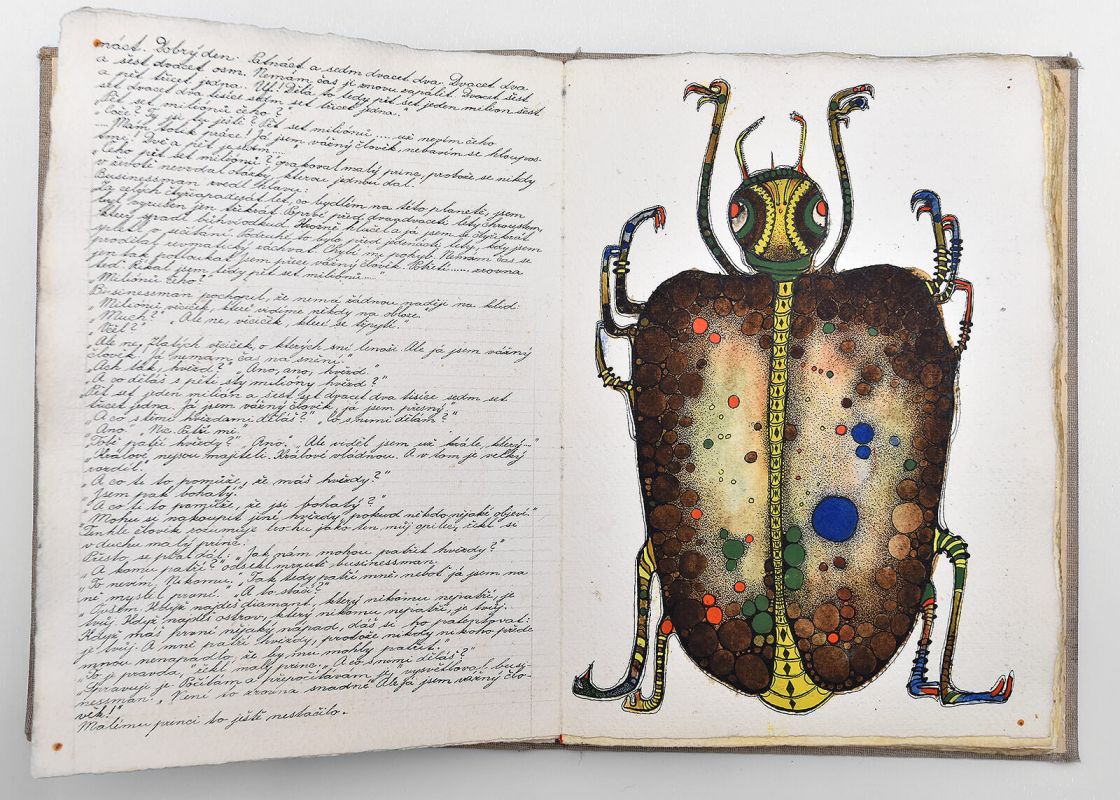 náct. Dobrý den. Patnáct a sedm dvacet dva. Dvacet dva
a šest dvacet osm. Nemám čas je znovu zapálit. Dvacet šest
a pět třicet jedna. Uf! Dělá to tedy pět set jeden milion šest
set dvacet dva tisíce sedm set třicet jedna."
„Pět set miliónů čeho?"
„Cože? Ty jsi tu ještě? Pět set miliónů ..... už nevím čeho
„Mám tolik práce! Já jsem vážný člověk, nebavím se hloupos-
tmi! Dvě a pět je sedm....
„Čeho pět set miliónů?" opakoval malý princ, protože se nikdy
v životě nevzdal otázky, kterou jednou dal.
Businessman zvedl hlavu:
„Za celých čtyřiapadesát let, co bydlím na této planetě, jsem
byl vyrušen jen třikrát. Poprvé před dvaadvaceti lety chroustem,
který spadl bůhvíodkud. Hrozně hlučel a já jsem se čtyřikrát
spletl v sčítání. Podruhé to bylo před jedenácti lety, kdy jsem
prodělal revmatický záchvat. Chybí mi pohyb. Nemám čas se
jen tak potloukat. Jsem přece vážný člověk. Potřetí ...... zrovna
teď. Říkal jsem tedy pět set miliónů...."
„Miliónů čeho?"
Businessman pochopil, že nemá žádnou naději na klid:
„Miliónů věciček, které vidíme někdy na obloze."
„Much?" „Ale ne, věciček, které se třpytí."
„Včel?"
„Ale ne, zlatých věciček, o kterých sní lenoši. Ale já jsem vážný
člověk! Já nemám čas na snění."
„Ach tak, hvězd?" „Ano, ano, hvězd."
„A co děláš s pěti sty miliony hvězd?"
„Pět set jeden milión a šest set dvacet dva tisíce sedm set
třicet jedna. Já jsem vážný člověk, já jsem přesný."
„A co s těmi hvězdami děláš?" „Co s nimi dělám?"
„Ano." „Nic. Patří mi."
„Tobě patří hvězdy?" „Ano." „Ale viděl jsem už krále, který..."
„Králové nejsou majiteli. Králové vládnou. A v tom je velký
rozdíl."
„A co ti to pomůže, že máš hvězdy?"
„Jsem pak bohatý."
„A co ti to pomůže, že jsi bohatý?"
„Mohu si nakoupit jiné hvězdy, pokud někdo nějaké objeví."
„Tenhle člověk uvažuje trochu jako ten můj opilec", řekl si
v duchu malý princ.
Přesto se ptal dál: „Jak nám mohou patřit hvězdy?"
„A komu patří?" odsekl mrzutě businessman.
„To nevím, Nikomu." „Tak tedy patří mně, neboť já jsem na
ně myslel první." „A to stačí?"
„Ovšem. Když najdeš diamant, který nikomu nepatří, je
tvůj. Když najdeš ostrov, který nikomu nepatří, je tvůj.
Když máš první nějaký nápad, dáš si ho patentovat:
je tvůj. A mně patří hvězdy, protože nikdy nikoho přede
mnou nenapadlo, že by mu mohly patřit."
„To je pravda," řekl malý princ. „A co s nimi děláš?"
„Spravuji je. Počítám a přepočítávám je," vysvětloval busi-
nessman. „Není to zrovna snadné. Ale já jsem vážný člo-
věk!"
Malému princi to ještě nestačilo.